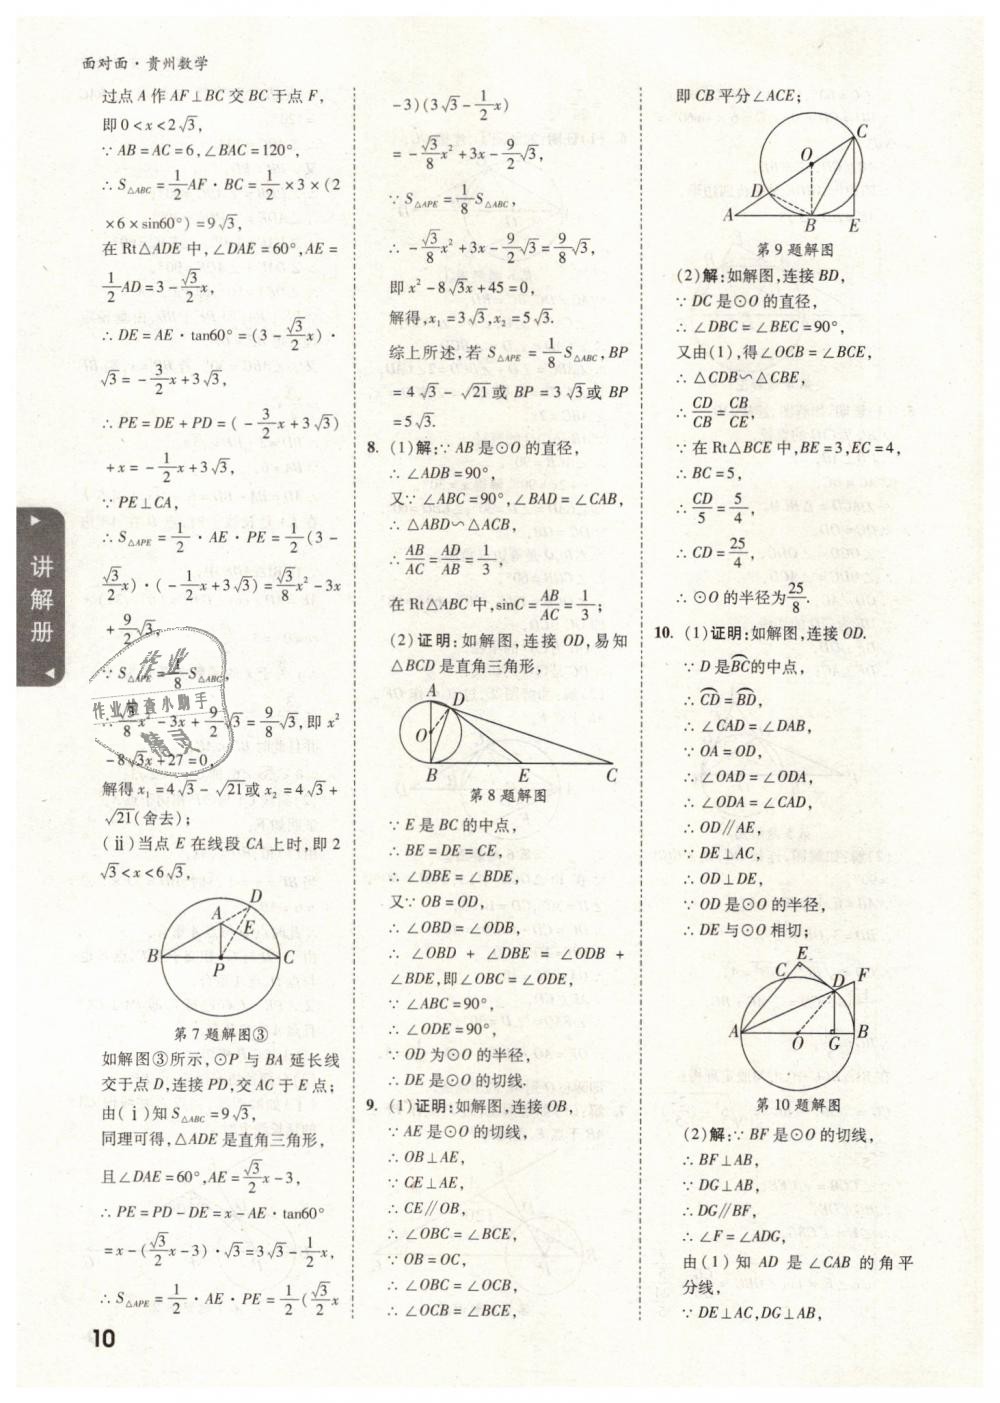 面对面·贵州数学
过点 A 作 AF⊥BC 交 BC 于点 F,
即 0<x<2√3,
∵ AB=AC=6,∠BAC=120°,
∴ S△ABC=1/2 AF·BC=1/2×3×(2
×6×sin60°)=9√3,
在 Rt△ADE 中,∠DAE=60°,AE=
1/2 AD=3-√3/2 x,
∴ DE=AE·tan60°=(3-√3/2 x)·
√3=-3/2 x+3√3,
∴ PE=DE+PD=(-3/2 x+3√3)
+x=-1/2 x+3√3,
∵ PE⊥CA,
∴ S△APE=1/2·AE·PE=1/2(3-
√3/2 x)·(-1/2 x+3√3)=√3/8 x²-3x
+9/2 √3,
∵ S△APE=1/8 S△ABC,
∴ √3/8 x²-3x+9/2 √3=9/8 √3,即 x²
-8√3x+27=0,
解得 x₁=4√3-√21或 x₂=4√3+
√21(舍去);
(ⅱ)当点 E 在线段 CA 上时,即 2
√3<x<6√3,
A
D
E
B
P
C
第 7 题解图③
如解图③所示,⊙P 与 BA 延长线
交于点 D,连接 PD,交 AC 于 E 点;
由(ⅰ)知 S△ABC=9√3,
同理可得,△ADE 是直角三角形,
且∠DAE=60°,AE=√3/2 x-3,
∴ PE=PD-DE=x-AE·tan60°
=x-(√3/2 x-3)·√3=3√3-1/2 x,
∴ S△APE=1/2·AE·PE=1/2(√3/2 x
-3)(3√3-1/2 x)
=-√3/8 x²+3x-9/2 √3,
∵ S△APE=1/8 S△ABC,
∴ -√3/8 x²+3x-9/2 √3=9/8 √3,
即 x²-8√3x+45=0,
解得,x₁=3√3,x₂=5√3.
综上所述,若 S△APE=1/8 S△ABC,BP
=4√3-√21或 BP=3√3或 BP
=5√3.
8. (1)解:∵ AB 是⊙O 的直径,
∴ ∠ADB=90°,
又∵ ∠ABC=90°,∠BAD=∠CAB,
∴ △ABD∽△ACB,
∴ AB/AC=AD/AB=1/3,
在 Rt△ABC 中,sinC=AB/AC=1/3;
(2)证明:如解图,连接 OD,易知
△BCD 是直角三角形,
A
D
O
B
E
C
第 8 题解图
∵ E 是 BC 的中点,
∴ BE=DE=CE,
∴ ∠DBE=∠BDE,
又∵ OB=OD,
∴ ∠OBD=∠ODB,
∴ ∠OBD+∠DBE=∠ODB+
∠BDE,即∠OBC=∠ODE,
∵ ∠ABC=90°,
∴ ∠ODE=90°,
∵ OD 为⊙O 的半径,
∴ DE 是⊙O 的切线.
9. (1)证明:如解图,连接 OB,
∵ AE 是⊙O 的切线,
∴ OB⊥AE,
∵ CE⊥AE,
∴ CE∥OB,
∴ ∠OBC=∠BCE,
∵ OB=OC,
∴ ∠OBC=∠OCB,
∴ ∠OCB=∠BCE,
即 CB 平分∠ACE;
C
O
D
A
B
E
第 9 题解图
(2)解:如解图,连接 BD,
∵ DC 是⊙O 的直径,
∴ ∠DBC=∠BEC=90°,
又由(1),得∠OCB=∠BCE,
∴ △CDB∽△CBE,
∴ CD/CB=CB/CE,
∵ 在 Rt△BCE 中,BE=3,EC=4,
∴ BC=5,
∴ CD/5=5/4,
∴ CD=25/4,
∴ ⊙O 的半径为25/8.
10. (1)证明:如解图,连接 OD.
∵ D 是B͡C的中点,
∴ C͡D=B͡D,
∴ ∠CAD=∠DAB,
∵ OA=OD,
∴ ∠OAD=∠ODA,
∴ ∠ODA=∠CAD,
∴ OD∥AE,
∵ DE⊥AC,
∴ OD⊥DE,
∵ OD 是⊙O 的半径,
∴ DE 与⊙O 相切;
E
C
D
F
A
O
G
B
第 10 题解图
(2)解:∵ BF 是⊙O 的切线,
∴ BF⊥AB,
∵ DG⊥AB,
∴ DG∥BF,
∴ ∠F=∠ADG,
由(1)知 AD 是∠CAB 的角平
分线,
∵ DE⊥AC,DG⊥AB,
讲解册
作业
作业检查小助手
精灵
10